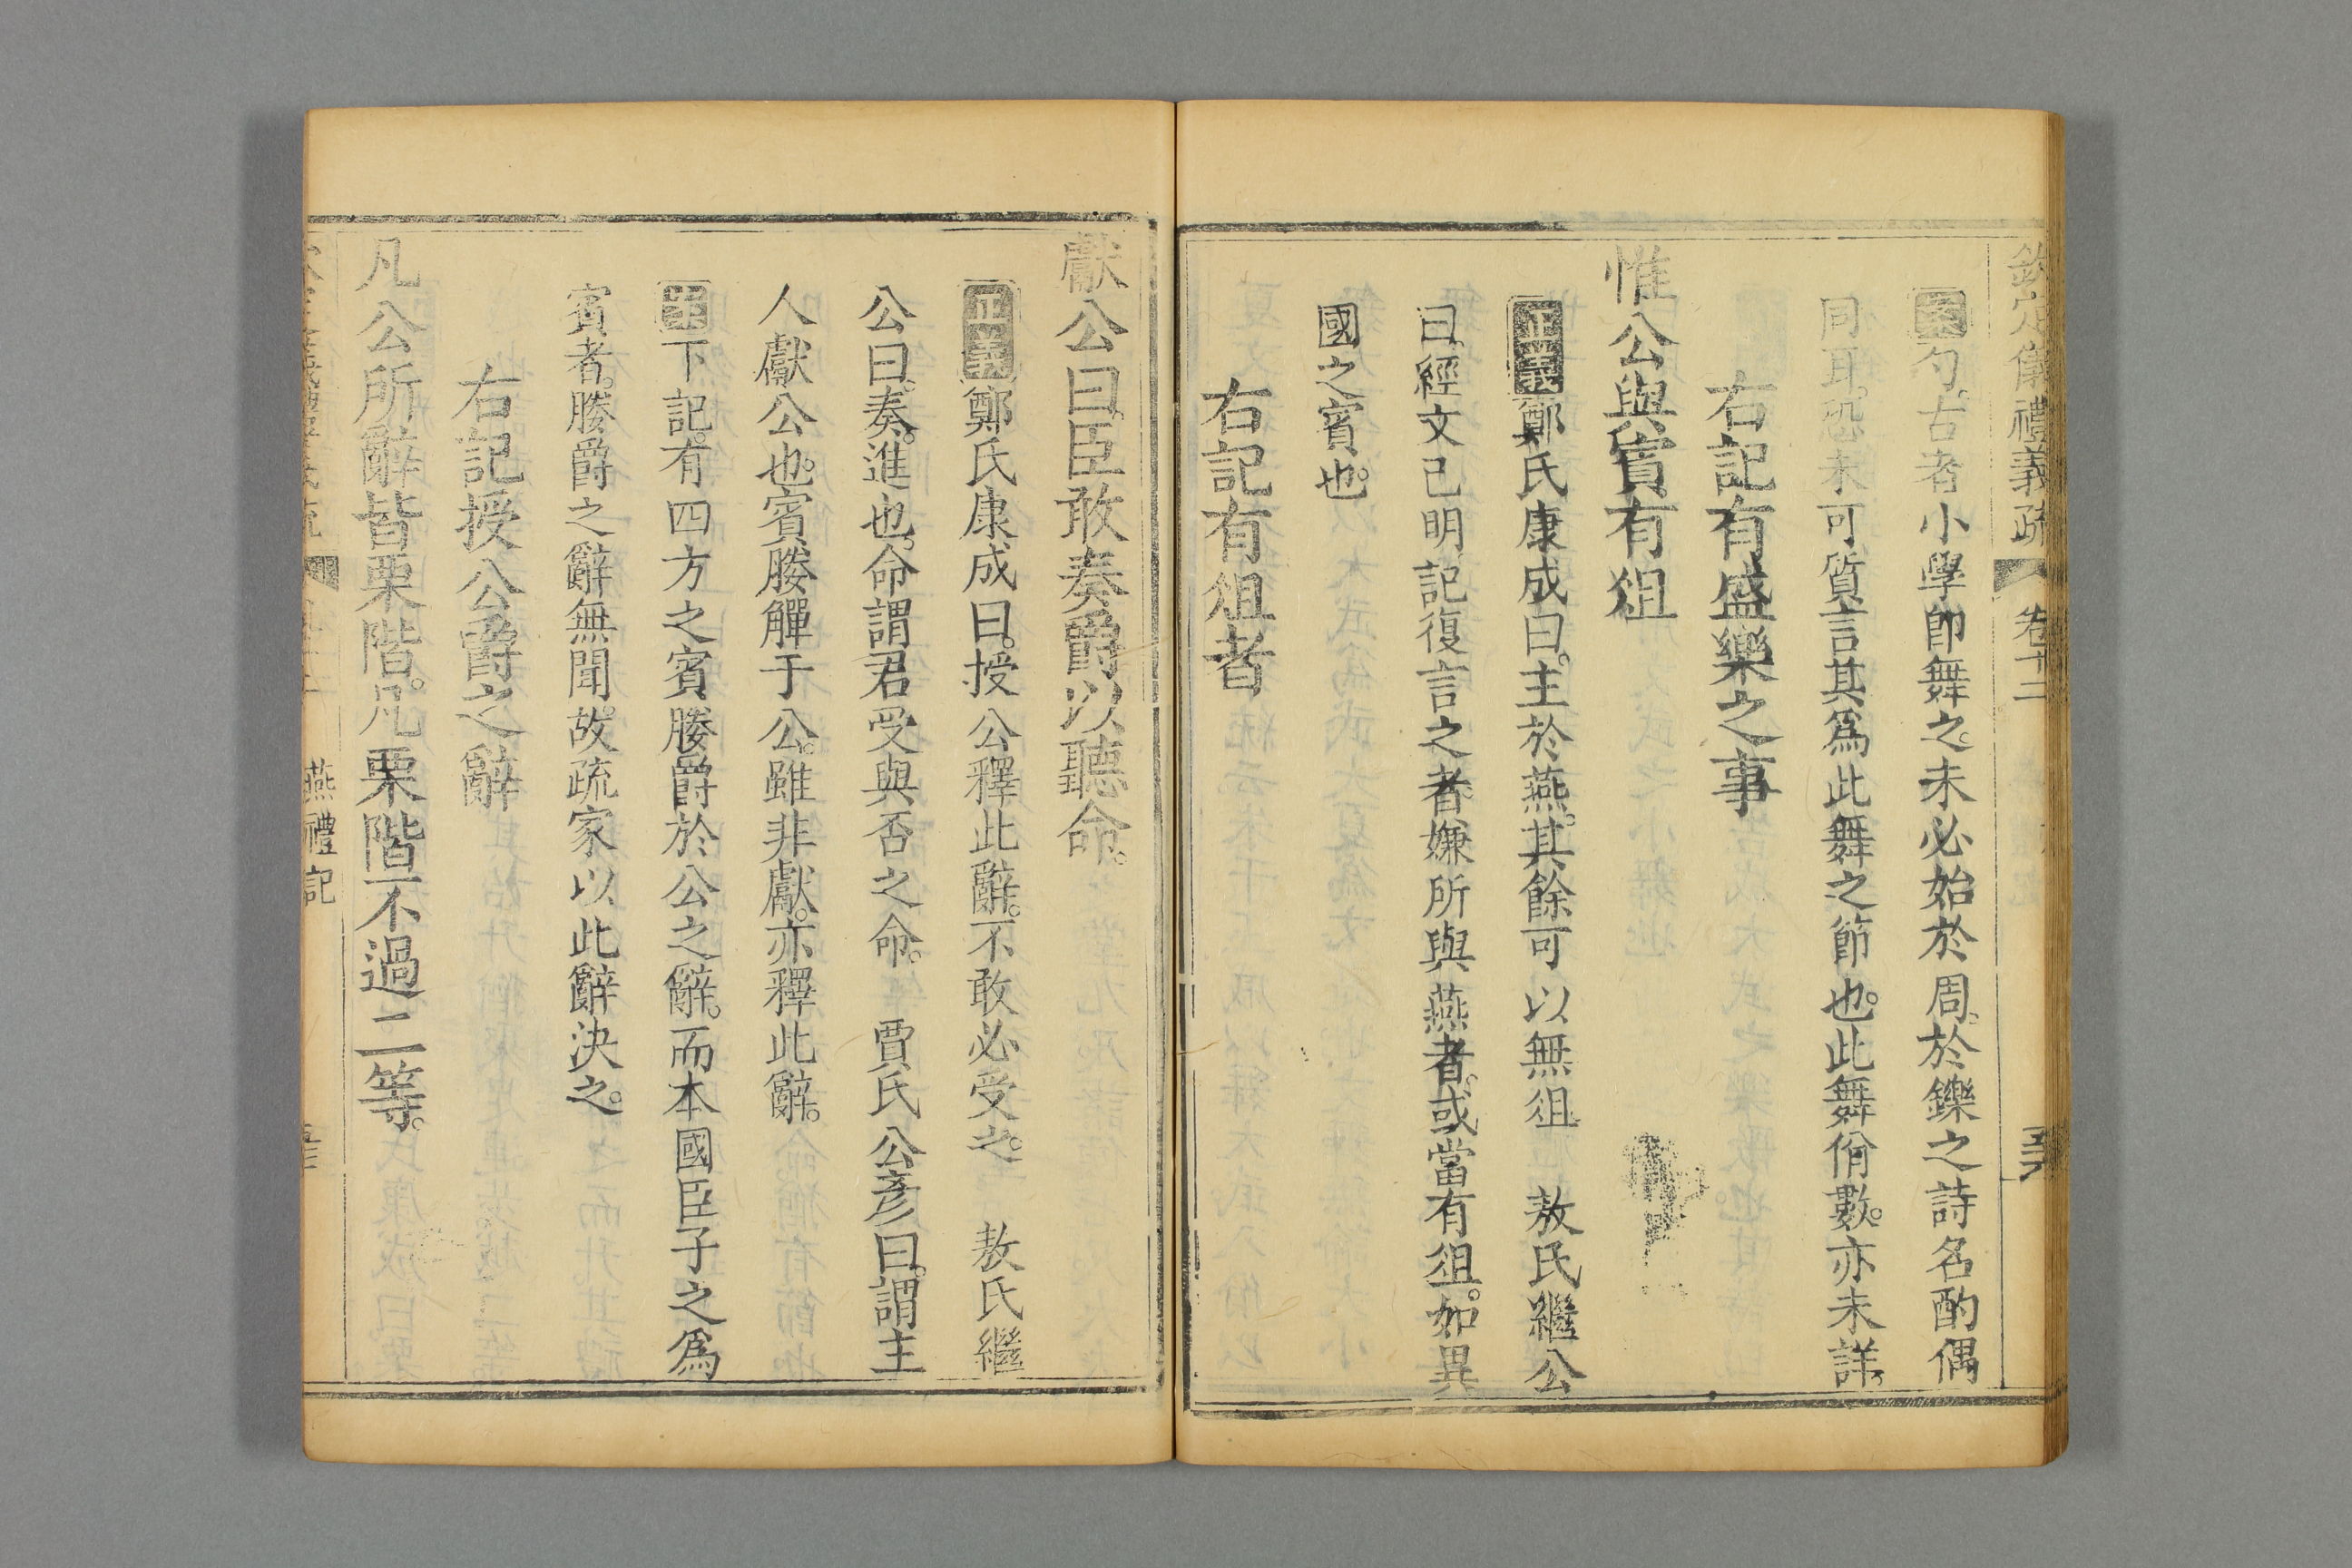 欽定儀禮義疏 卷十二
案勺。古者小學卽舞之。未必始於周。於鑠之詩名酌偶
同耳。恐未可質言其爲此舞之節也。此舞佾數。亦未詳。
右記有盛樂之事
惟公與賓有俎
正義鄭氏康成曰。主於燕。其餘可以無俎 敖氏繼公
曰。經文已明。記復言之者。嫌所與燕者。或當有俎。如異
國之賓也。
右記有俎者
獻公曰。臣敢奏爵以聽命。
正義鄭氏康成曰。授公釋此辭。不敢必受之。 敖氏繼
公曰。奏。進也。命謂君受與否之命。 賈氏公彥曰。謂主
人獻公也。賓媵觶于公。雖非獻。亦釋此辭。
下記。有四方之賓媵爵於公之辭。而本國臣子之爲
賓者。媵爵之辭無聞。故疏家以此辭決之。
右記授公爵之辭
凡公所辭皆栗階。凡栗階不過二等。
燕禮記